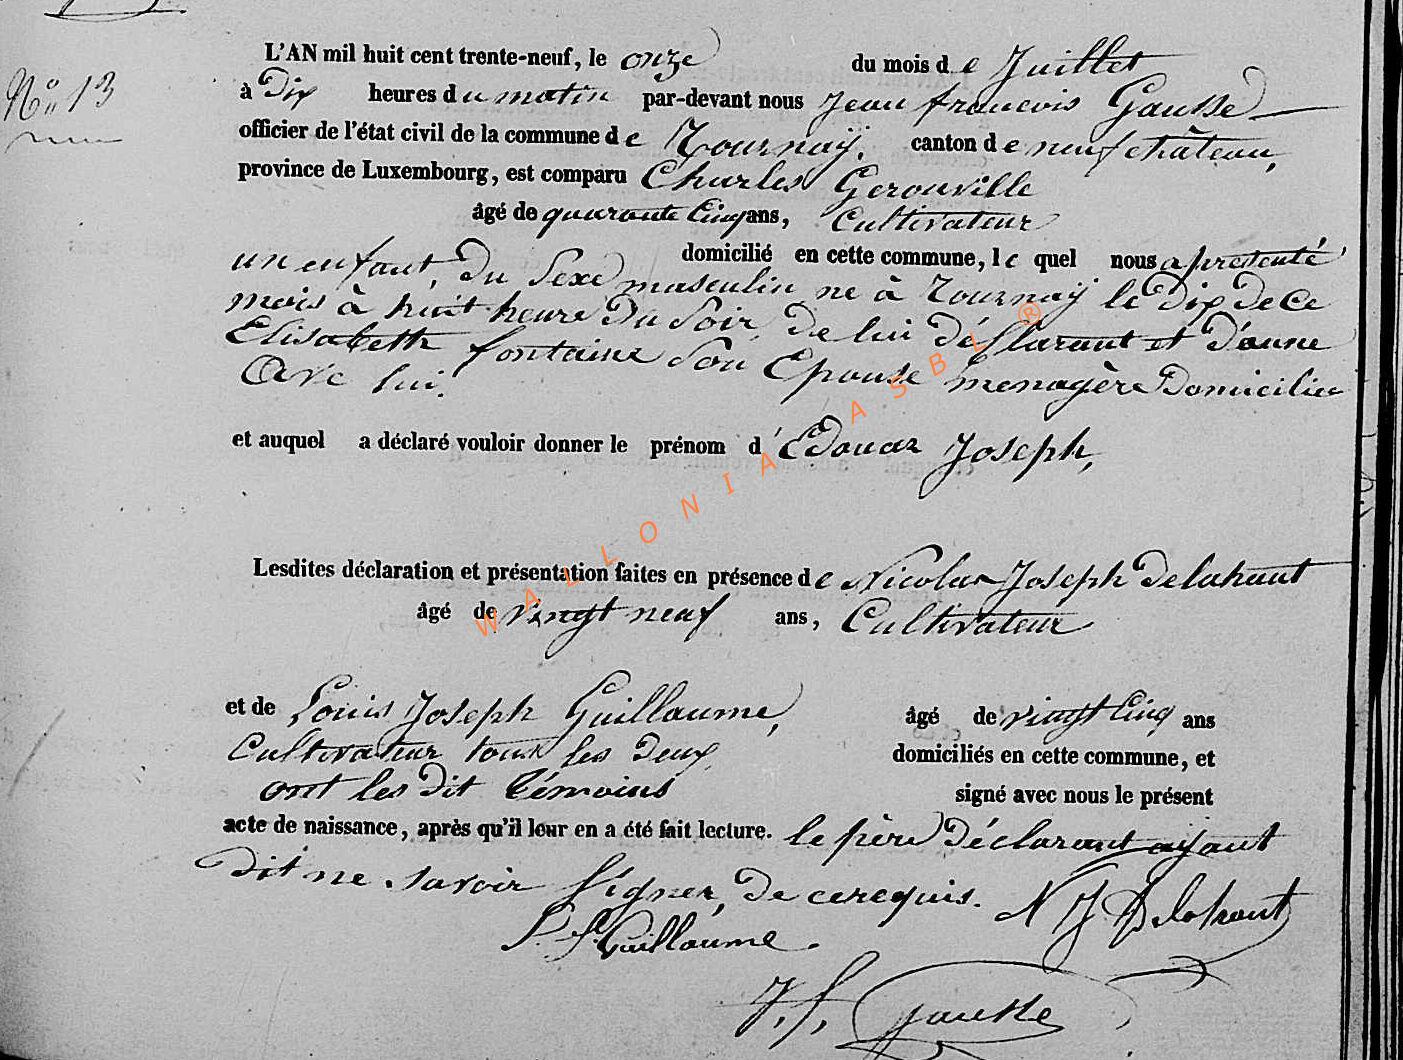 L'AN mil huit cent trente-neuf, le onze du mois de Juillet
N° 13
à Dix heures du matin par-devant nous Jean francois Gausse
officier de l'état civil de la commune de Tournaÿ. canton de neufchâteau,
province de Luxembourg, est comparu Charles Gerouville
âgé de quarante Cinq ans, Cultivateur
domicilié en cette commune, le quel nous a présenté
un enfant, du Sexe masculin ne à Tournaÿ le Dix de Ce
mois à huit heure du Soir, de lui déClarant et d'aune
Elisabeth fontaine Son Epouse menagère Domicilier
Avec lui.
et auquel a déclaré vouloir donner le prénom d'Edouar Joseph,
Lesdites déclaration et présentation faites en présence de Nicolas Joseph Delahaut
âgé de vingt neuf ans, Cultivateur
et de Louis Joseph Guillaume, âgé de vingt Cinq ans
Cultivateur tous les deux, domiciliés en cette commune, et
ont les dit témoins signé avec nous le présent
acte de naissance, après qu'il leur en a été fait lecture. le père Déclarant ayant
Dit ne savoir Signer, De ce requis. N J Delahaut
Guillaume.
J. f. Gausse
WALLONIA ASBL ®